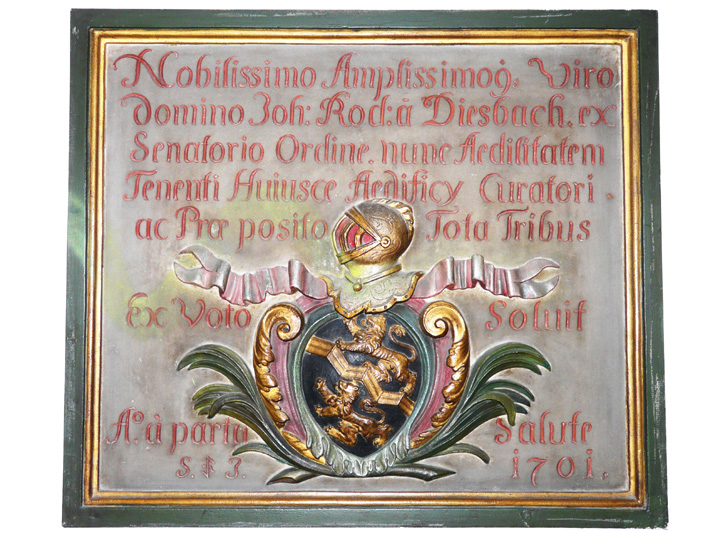 Nobilissimo Amplissimoq. Viro
domino Joh: Rod: à Diesbach. ex
Senatorio Ordine. nunc Aedilitatem
Tenenti Huiusce Aedificy Curatori.
ac Præ posito Tota Tribus
ex Voto Soluit
Aº. à parta Salute
1701.